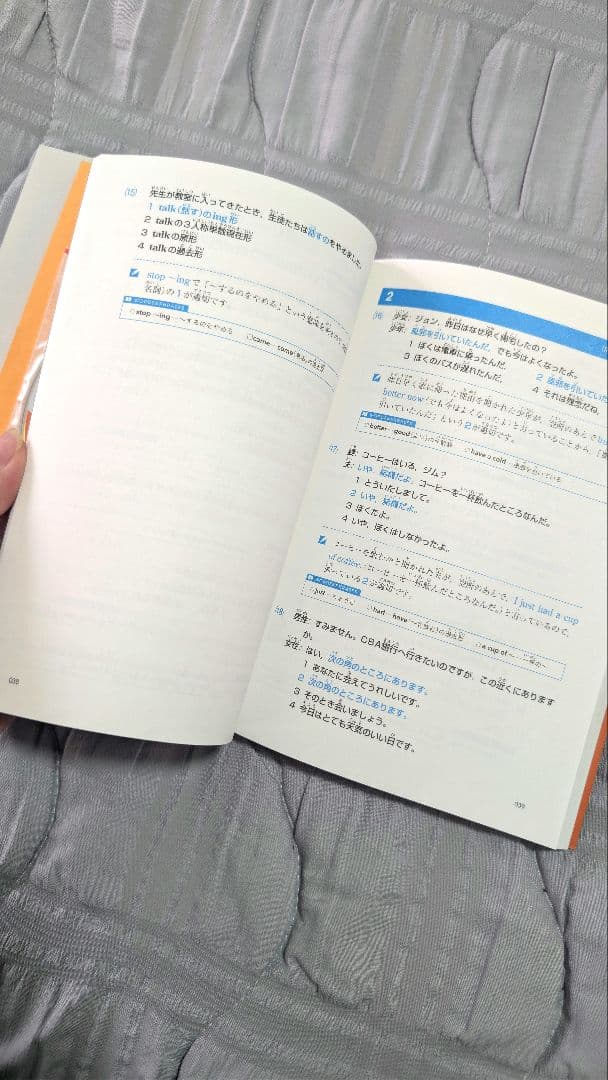 (15) 先生が教室に入ってきたとき、生徒たちは話すのをやめました。
1 talk(話す)のing形
2 talkの3人称単数現在形
3 talkの原形
4 talkの過去形
stop ~ingで「~するのをやめる」という意味を
名詞)の1が適切です。
WORDS&PHRASES
□stop ~ing—~するのをやめる □came—come
038
2
(16) 少女：ジョン、昨日はなぜ早く帰宅したの？
少年：風邪を引いていたんだ。でも今はよくなったよ。
1 ぼくは電車に乗ったんだ。 2 風邪を引いていた
3 ぼくのバスが遅れたんだ。 4 それは残念だね。
昨日早く家に帰った理由を聞かれた少年が、空所のあとで
better now(でも今はよくなったよ)と言っていることから、
引いていたんだ」という2が適切です。
WORDS&PHRASES
□better—good
□have a cold—風邪を引いている
(17) 妻：コーヒーはいる、ジム？
夫：いや、結構だよ。コーヒーを一杯飲んだところなんだ。
1 どういたしまして。
2 いや、結構だよ。
3 ぼくだよ。
4 いや、ぼくはしなかったよ。
コーヒーを飲むかと聞かれた夫が、空所のあとで、I just had a cup
of coffee.
言っているので、
2が適切です。
WORDS&PHRASES
□just—ちょうど □had—have □a cup of ~—一杯の~
(18) 男性：すみません。CBA銀行へ行きたいのですが、この近くにあります
か。
女性：はい、次の角のところにあります。
1 あなたに会えてうれしいです。
2 次の角のところにあります。
3 そのとき会いましょう。
4 今日はとても天気のいい日です。
039